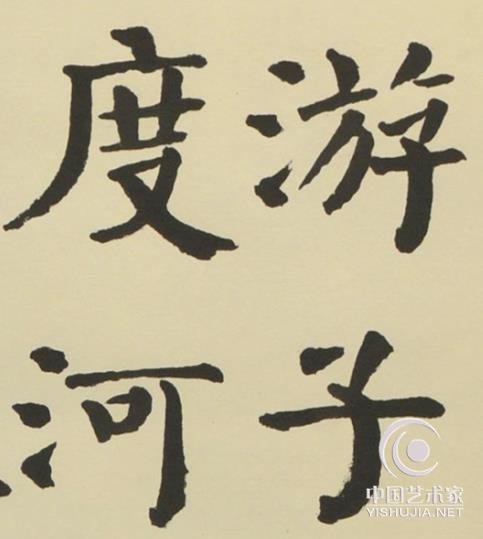 游子
度河
中国艺术家
YISHUJIA.NET